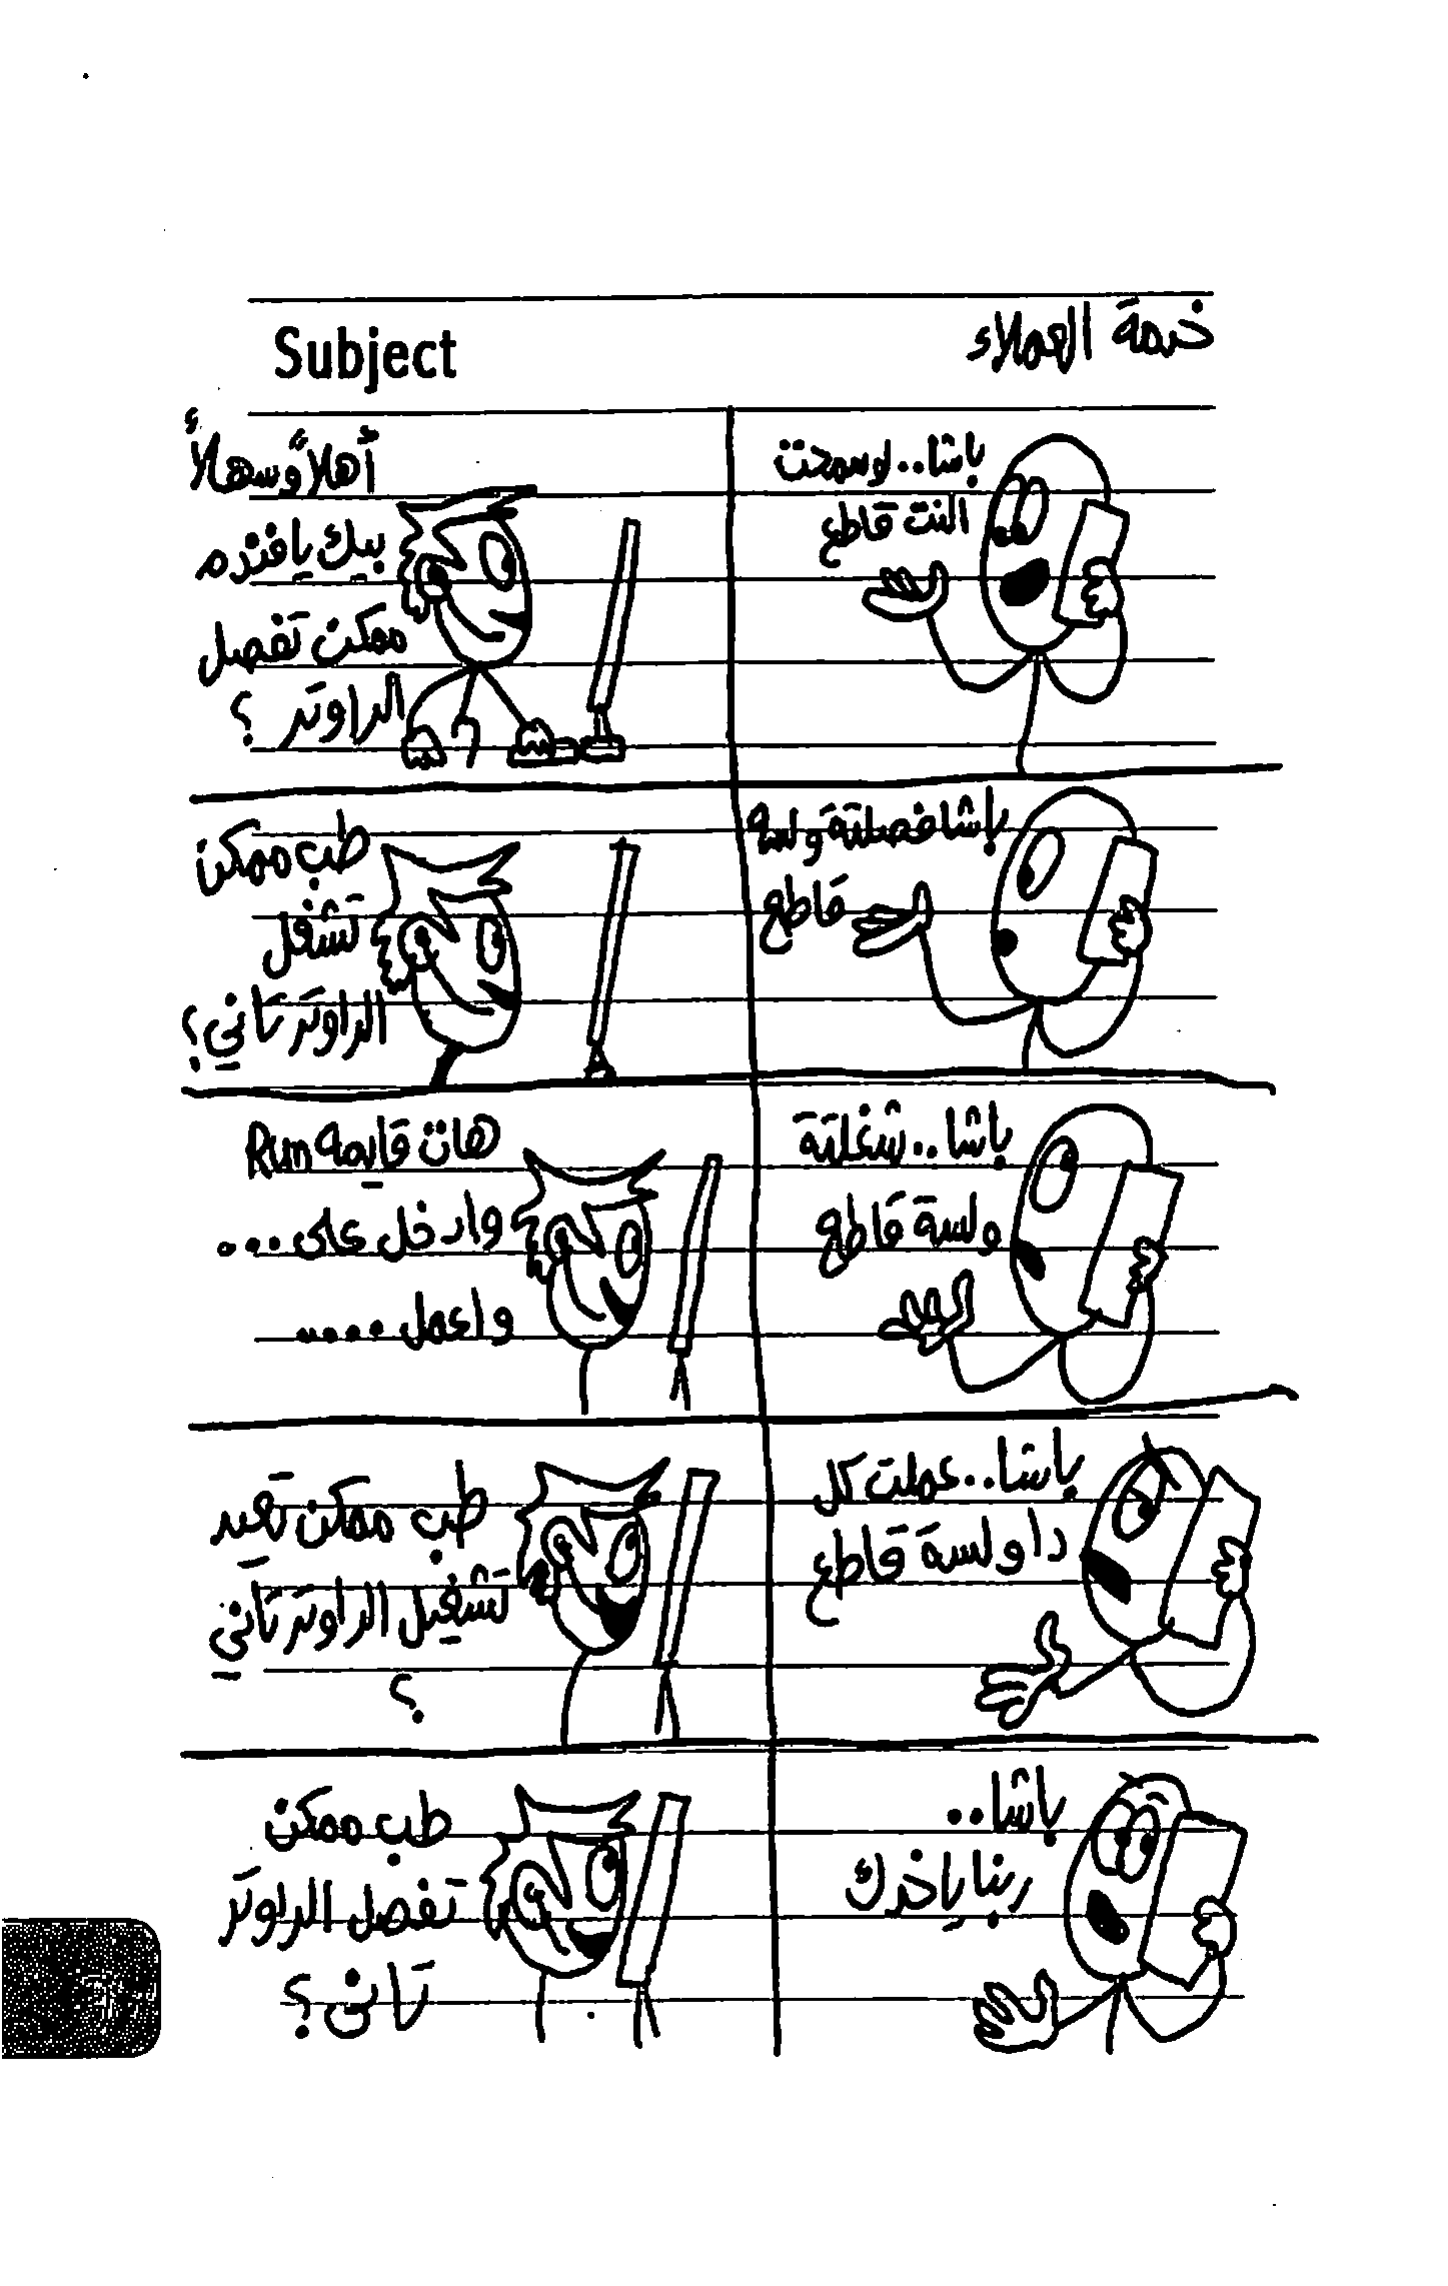 Subject
خدمة العملاء
باشا.. لوسمحت
النت قاطع
أهلاً وسهلاً
بيك يافندم
ممكن تفصل
الراوتر ؟
باشا فصلتة ولسه
قاطع
طب ممكن
تشغل
الراوتر تاني ؟
باشا.. شغلتة
ولسة قاطع
هات قايمه Run
وادخل على ...
واعمل .....
باشا.. عملت كل
دا ولسة قاطع
طب ممكن تعيد
تشغيل الراوتر تاني
؟
باشا..
ربنا ياخدك
طب ممكن
تفصل الراوتر
تانى ؟